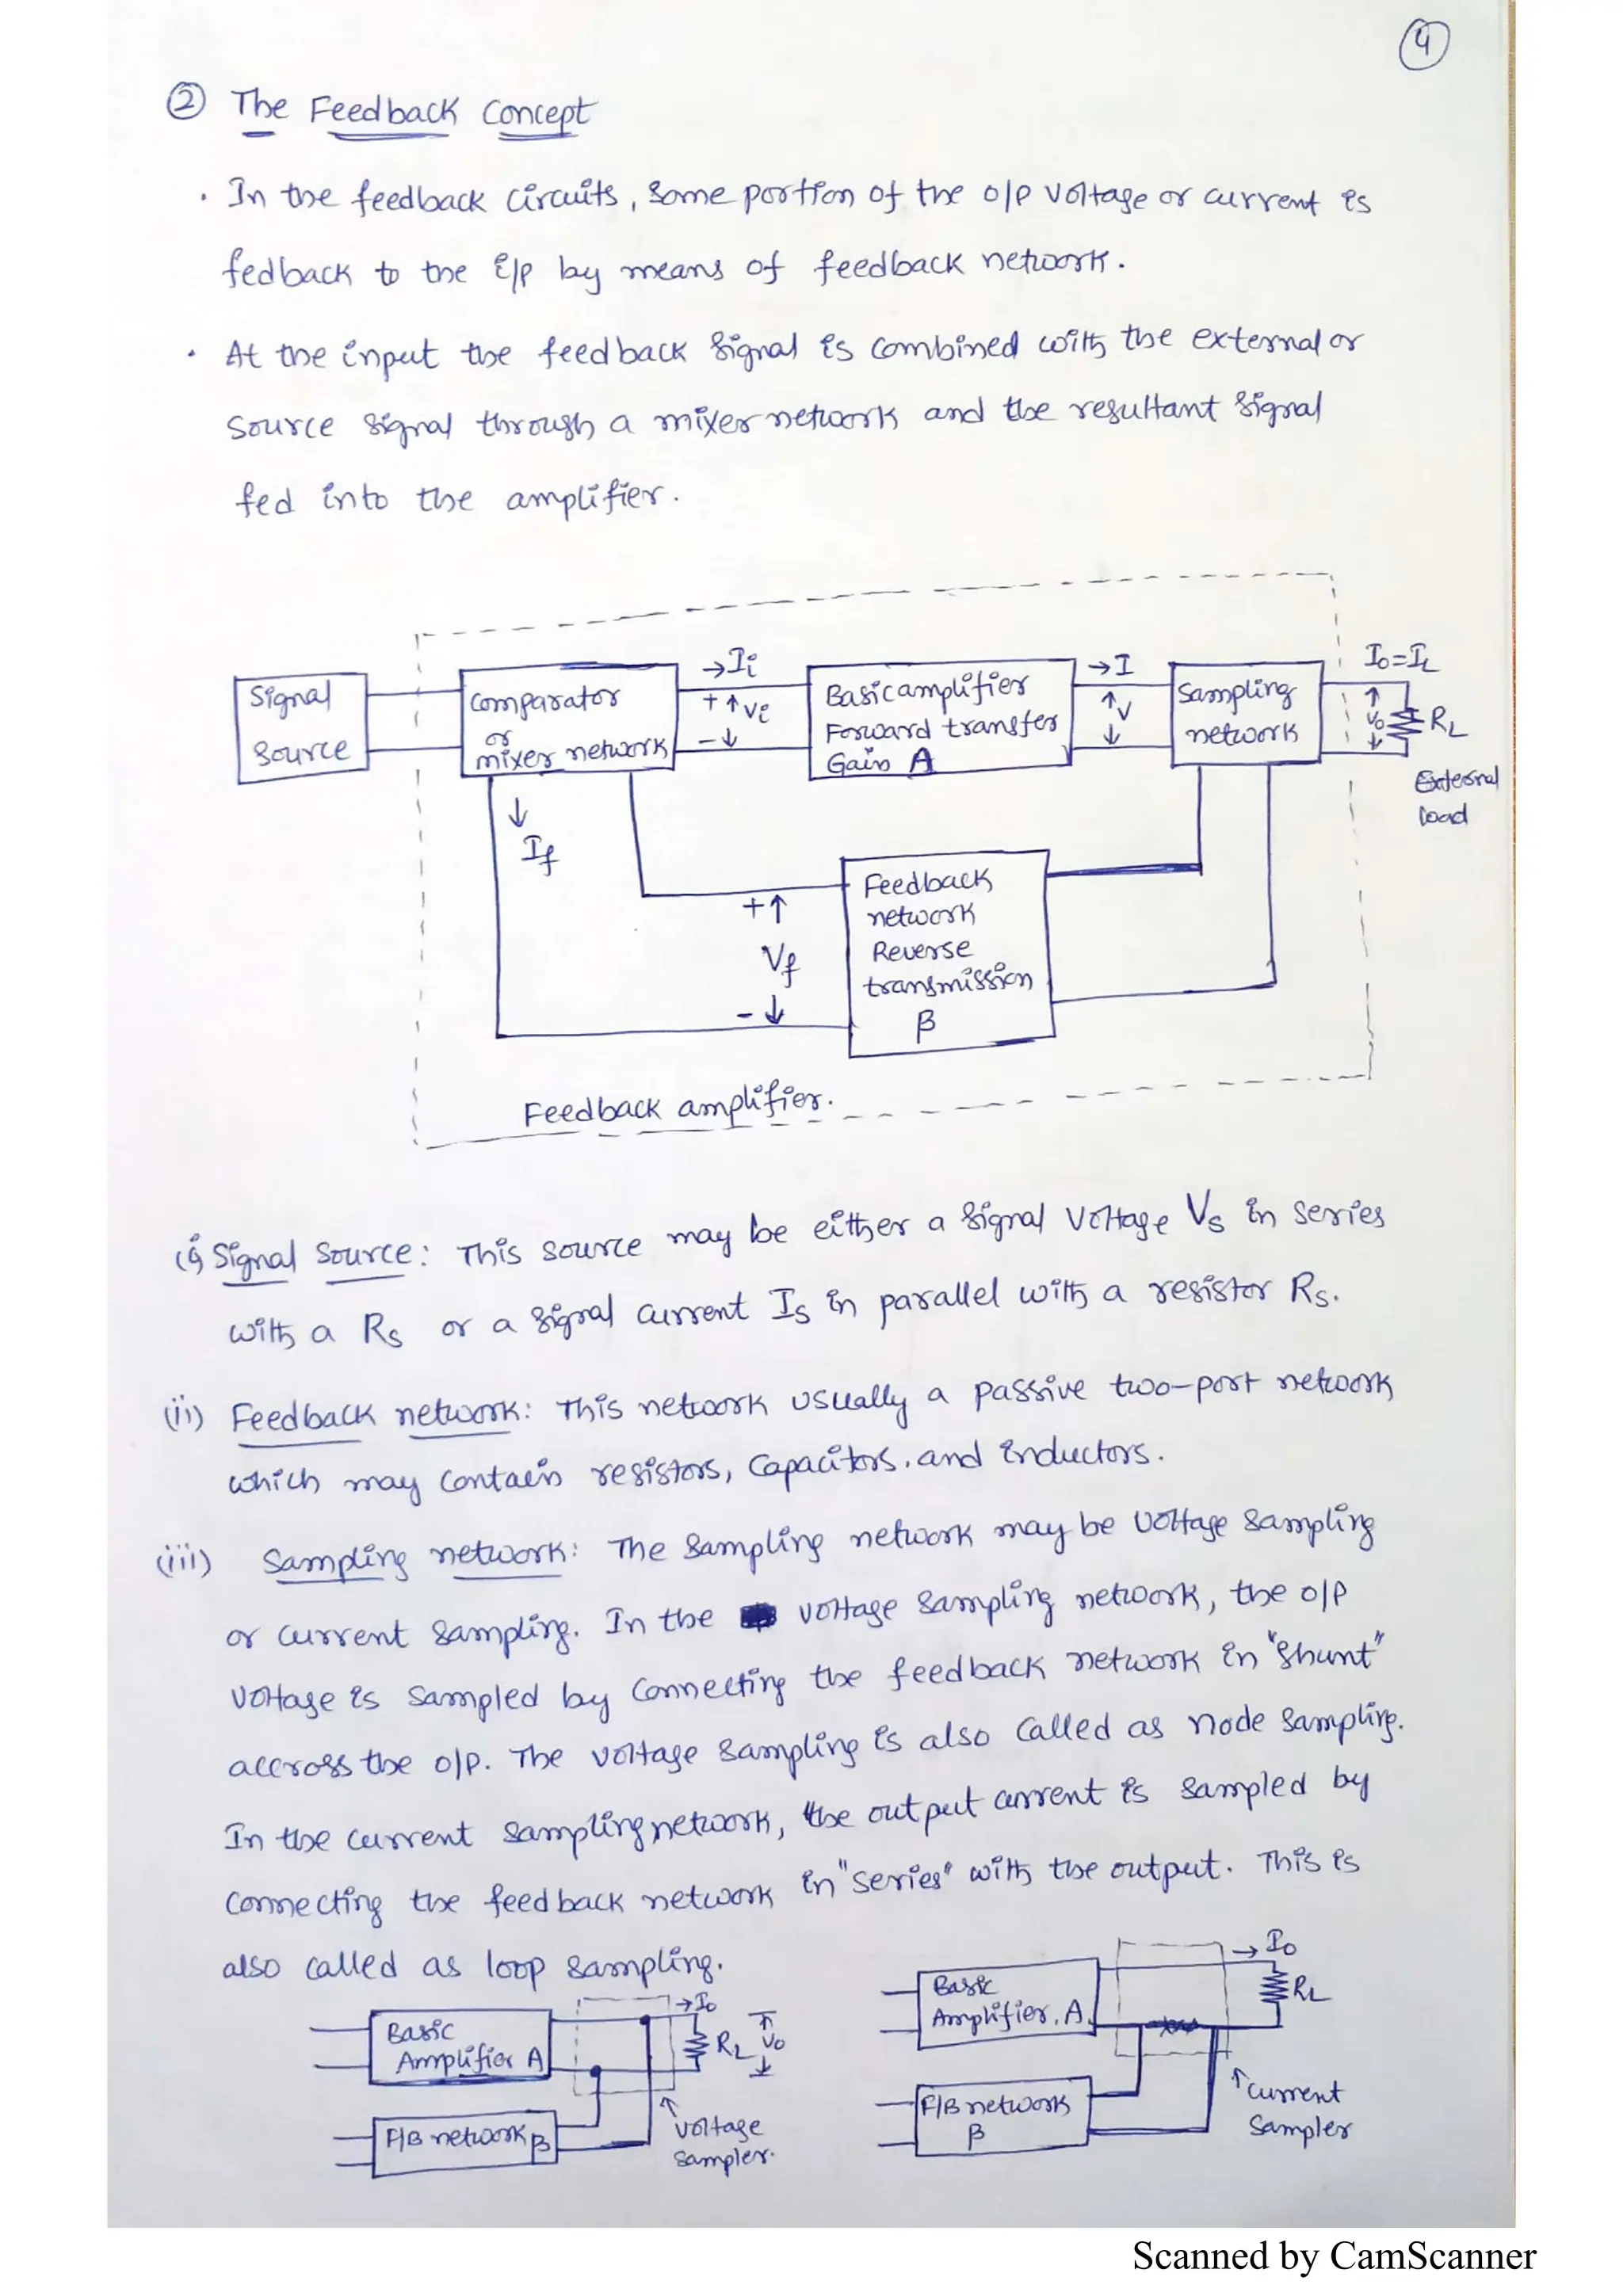 4
② The Feedback Concept
· In the feedback circuits, some portion of the o/p voltage or current is
fedback to the i/p by means of feedback network.
· At the input the feedback signal is combined with the external or
source signal through a mixer network and the resultant signal
fed into the amplifier.
Signal
Source
Comparator
or
mixer network
→Ii
+ ↑ Vi
- ↓
Basic amplifier
Forward transfer
Gain A
→I
↑
V
↓
Sampling
network
Io=IL
↑
Vo
↓
RL
External
load
↓
If
+↑
Vf
-↓
Feedback
network
Reverse
transmission
β
Feedback amplifier.
(i) Signal Source: This source may be either a signal voltage Vs in series
with a Rs or a signal current Is in parallel with a resistor Rs.
(ii) Feedback network: This network usually a passive two-port network
which may contain resistors, capacitors, and inductors.
(iii) Sampling network: The sampling network may be voltage sampling
or current sampling. In the voltage sampling network, the o/p
voltage is sampled by connecting the feedback network in "shunt"
accross the o/p. The voltage sampling is also called as node sampling.
In the current sampling network, the output current is sampled by
connecting the feedback network in "series" with the output. This is
also called as loop sampling.
Basic
Amplifier A
→Io
RL
Vo
F/B network β
↑
voltage
sampler.
Basic
Amplifier, A
→Io
RL
F/B network
β
↑ current
sampler
Scanned by CamScanner